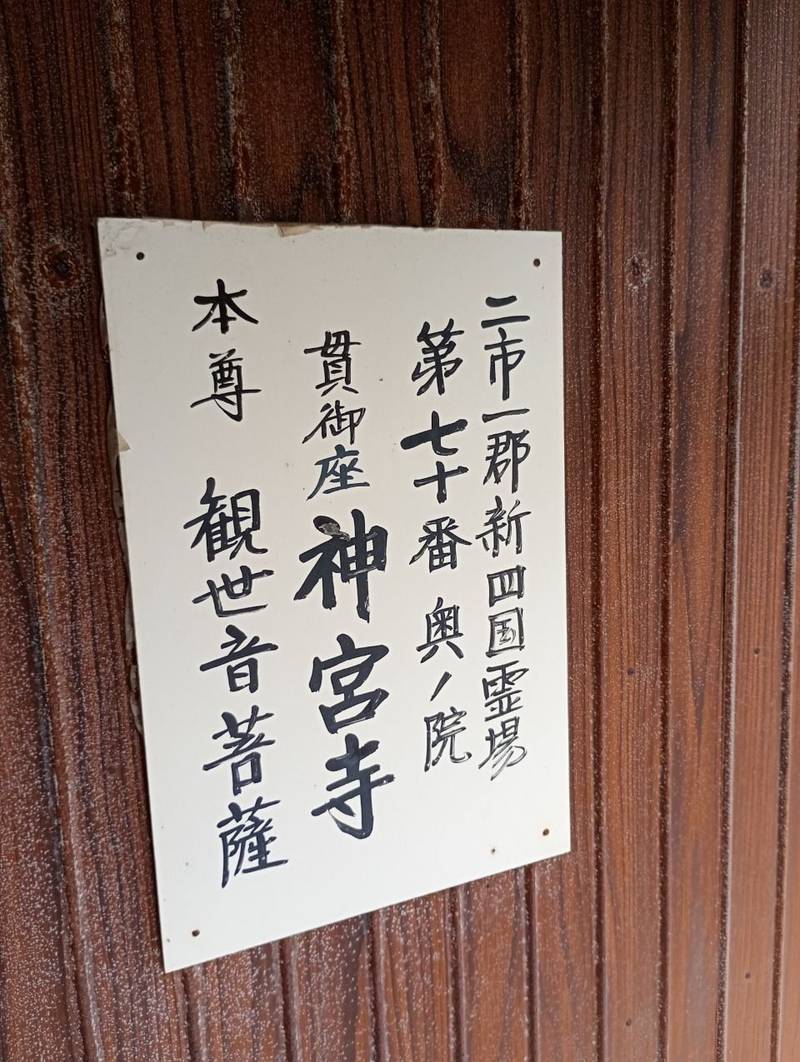 二市一郡新四国霊場
第七十番奥ノ院
貫御座神宮寺
本尊 観世音菩薩